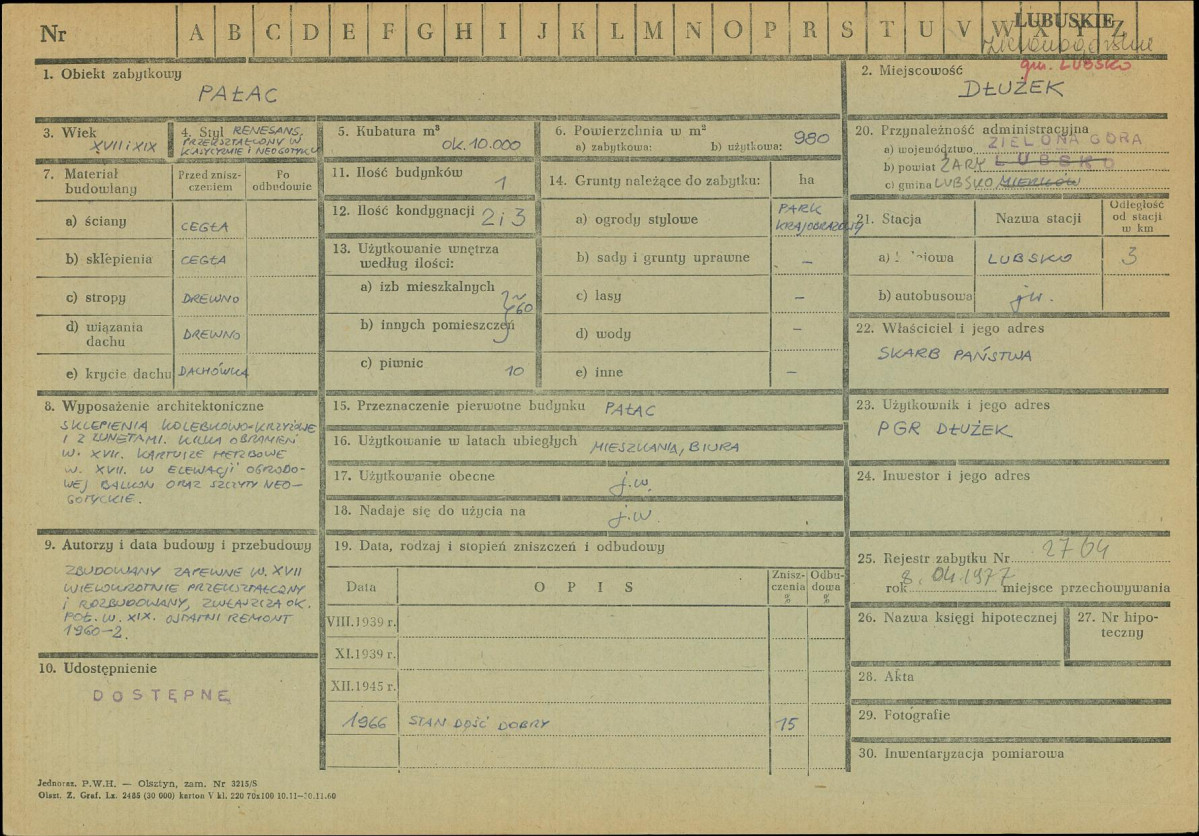 Nr A B C D E F G H I J K L M N O P R S T U V W X Y Z
LUBUSKIE
zielonogórskie
gm. LUBSKO
1. Obiekt zabytkowy
PAŁAC
2. Miejscowość
DŁUŻEK
3. Wiek
XVII i XIX
4. Styl RENESANS,
PRZEKSZTAŁCONY W
KLASYCYZMIE I NEOGOTYKU
5. Kubatura m³
ok. 10.000
6. Powierzchnia w m²
a) zabytkowa: b) użytkowa: 980
7. Materiał
budowlany
Przed znisz-
czeniem
Po
odbudowie
a) ściany CEGŁA
b) sklepienia CEGŁA
c) stropy DREWNO
d) wiązania
dachu DREWNO
e) krycie dachu DACHÓWKA
8. Wyposażenie architektoniczne
SKLEPIENIA KOLEBKOWO-KRZYŻOWE
I Z LUNETAMI. KILKA OBRAMIEŃ
W. XVII. KARTUSZE HERBOWE
W. XVII. W ELEWACJI OGRODO-
WEJ BALKON ORAZ SZCZYTY NEO-
GOTYCKIE.
9. Autorzy i data budowy i przebudowy
ZBUDOWANY ZAPEWNE W. XVII
WIELOKROTNIE PRZEKSZTAŁCONY
I ROZBUDOWANY, ZWŁASZCZA OK.
POŁ. W. XIX. OSTATNI REMONT
1960-2.
10. Udostępnienie
DOSTĘPNE
11. Ilość budynków
1
12. Ilość kondygnacji 2 i 3
13. Użytkowanie wnętrza
według ilości:
a) izb mieszkalnych
~60
b) innych pomieszczeń
c) piwnic
10
14. Grunty należące do zabytku: ha
a) ogrody stylowe PARK
KRAJOBRAZOWY
b) sady i grunty uprawne –
c) lasy –
d) wody –
e) inne –
15. Przeznaczenie pierwotne budynku PAŁAC
16. Użytkowanie w latach ubiegłych MIESZKANIA, BIURA
17. Użytkowanie obecne j.w.
18. Nadaje się do użycia na j.w
19. Data, rodzaj i stopień zniszczeń i odbudowy
Data O P I S Znisz-
czenia
%
Odbu-
dowa
%
VIII.1939 r.
XI.1939 r.
XII.1945 r.
1966 STAN DOŚĆ DOBRY 15
20. Przynależność administracyjna
a) województwo ZIELONA GÓRA
b) powiat ŻARY LUBSKO
c) gmina LUBSKO MIERKÓW
21. Stacja Nazwa stacji Odległość
od stacji
w km
a) LUBSKO 3
b) autobusowa j.w.
22. Właściciel i jego adres
SKARB PAŃSTWA
23. Użytkownik i jego adres
PGR DŁUŻEK
24. Inwestor i jego adres
25. Rejestr zabytku Nr 2764
rok 8.04.1977 miejsce przechowywania
26. Nazwa księgi hipotecznej
27. Nr hipo-
teczny
28. Akta
29. Fotografie
30. Inwentaryzacja pomiarowa
Jednoraz. P.W.H. — Olsztyn, zam. Nr 3215/S
Olszt. Z. Graf. Lz. 2485 (30 000) karton V kl. 220 70x100 10.11–30.11.60